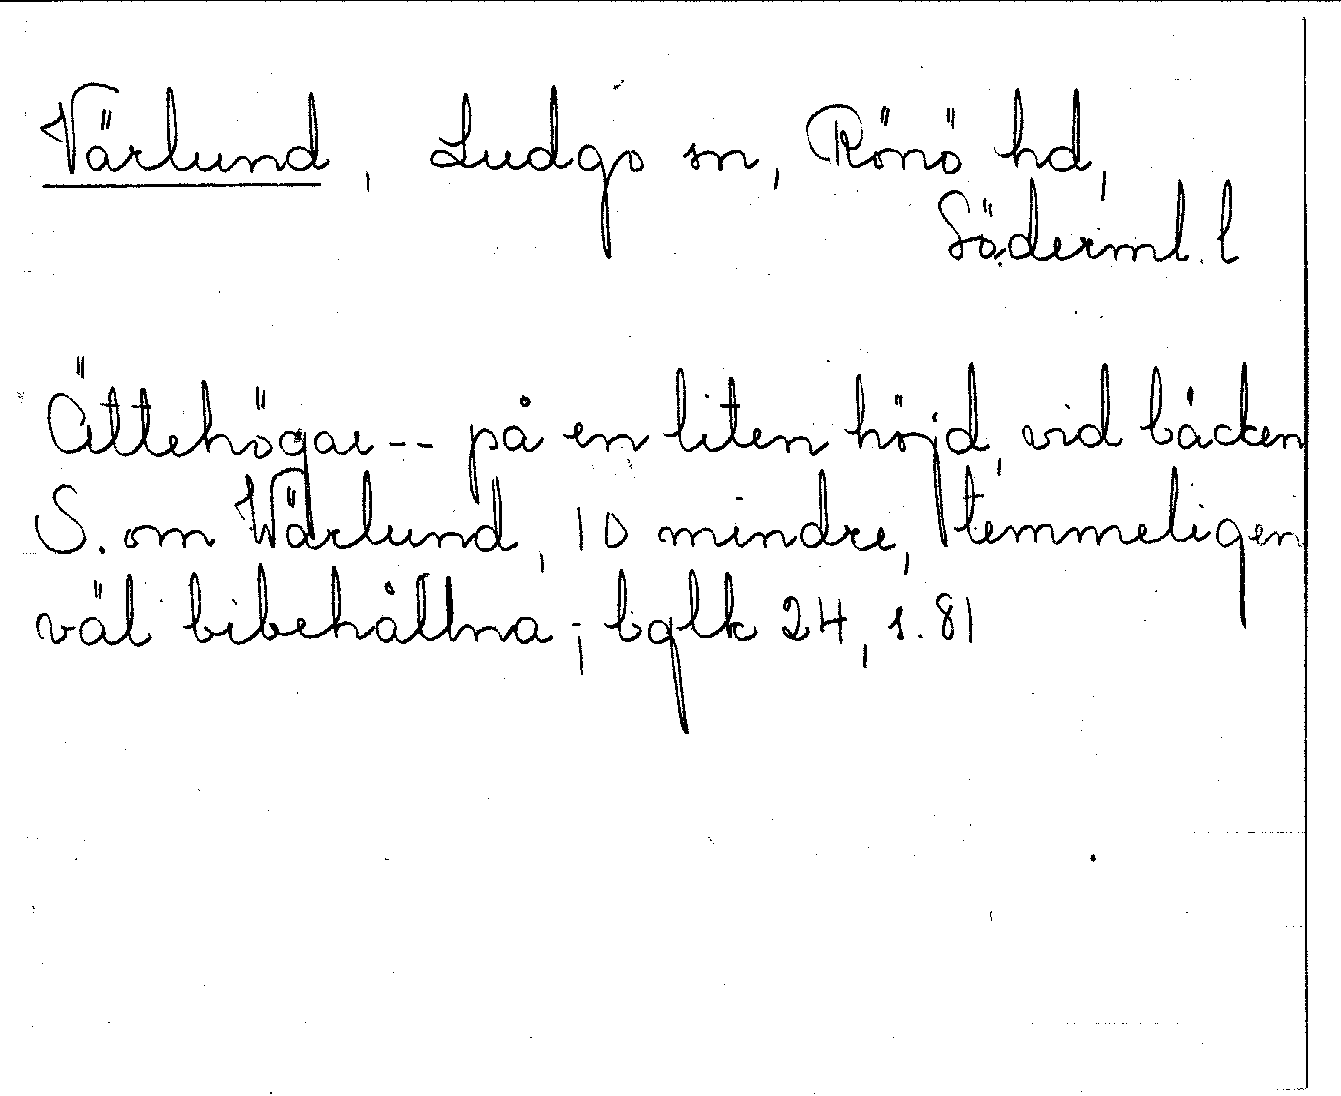 Värlund, Ludgo sn, Rönö hd,
Söderml. l
Ättehögar -- på en liten höjd, vid bäcken
S. om Wärlund, 10 mindre, temmeligen
väl bibehållna; bglk 24, s. 81